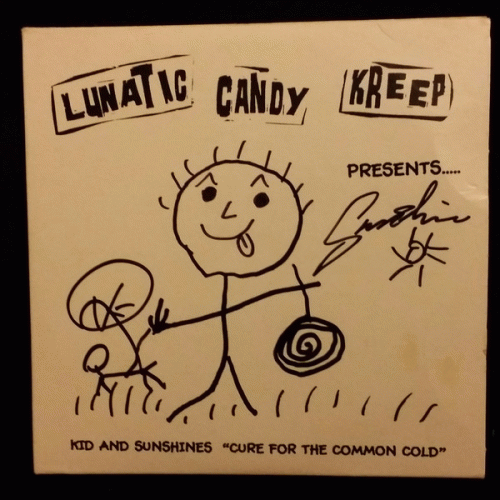 LUNATIC CANDY KREEP
PRESENTS.....
Sunshine
KID AND SUNSHINES "CURE FOR THE COMMON COLD"